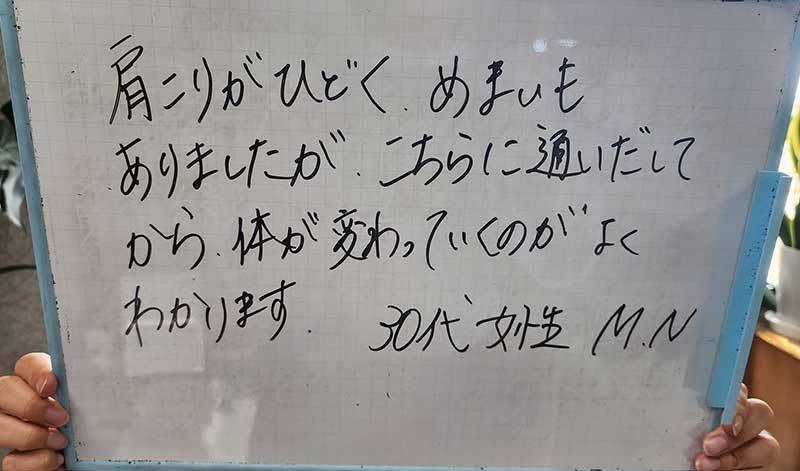 肩こりがひどく、めまいも
ありましたが、こちらに通いだして
から、体が変わっていくのがよく
わかります.
30代女性 M.N